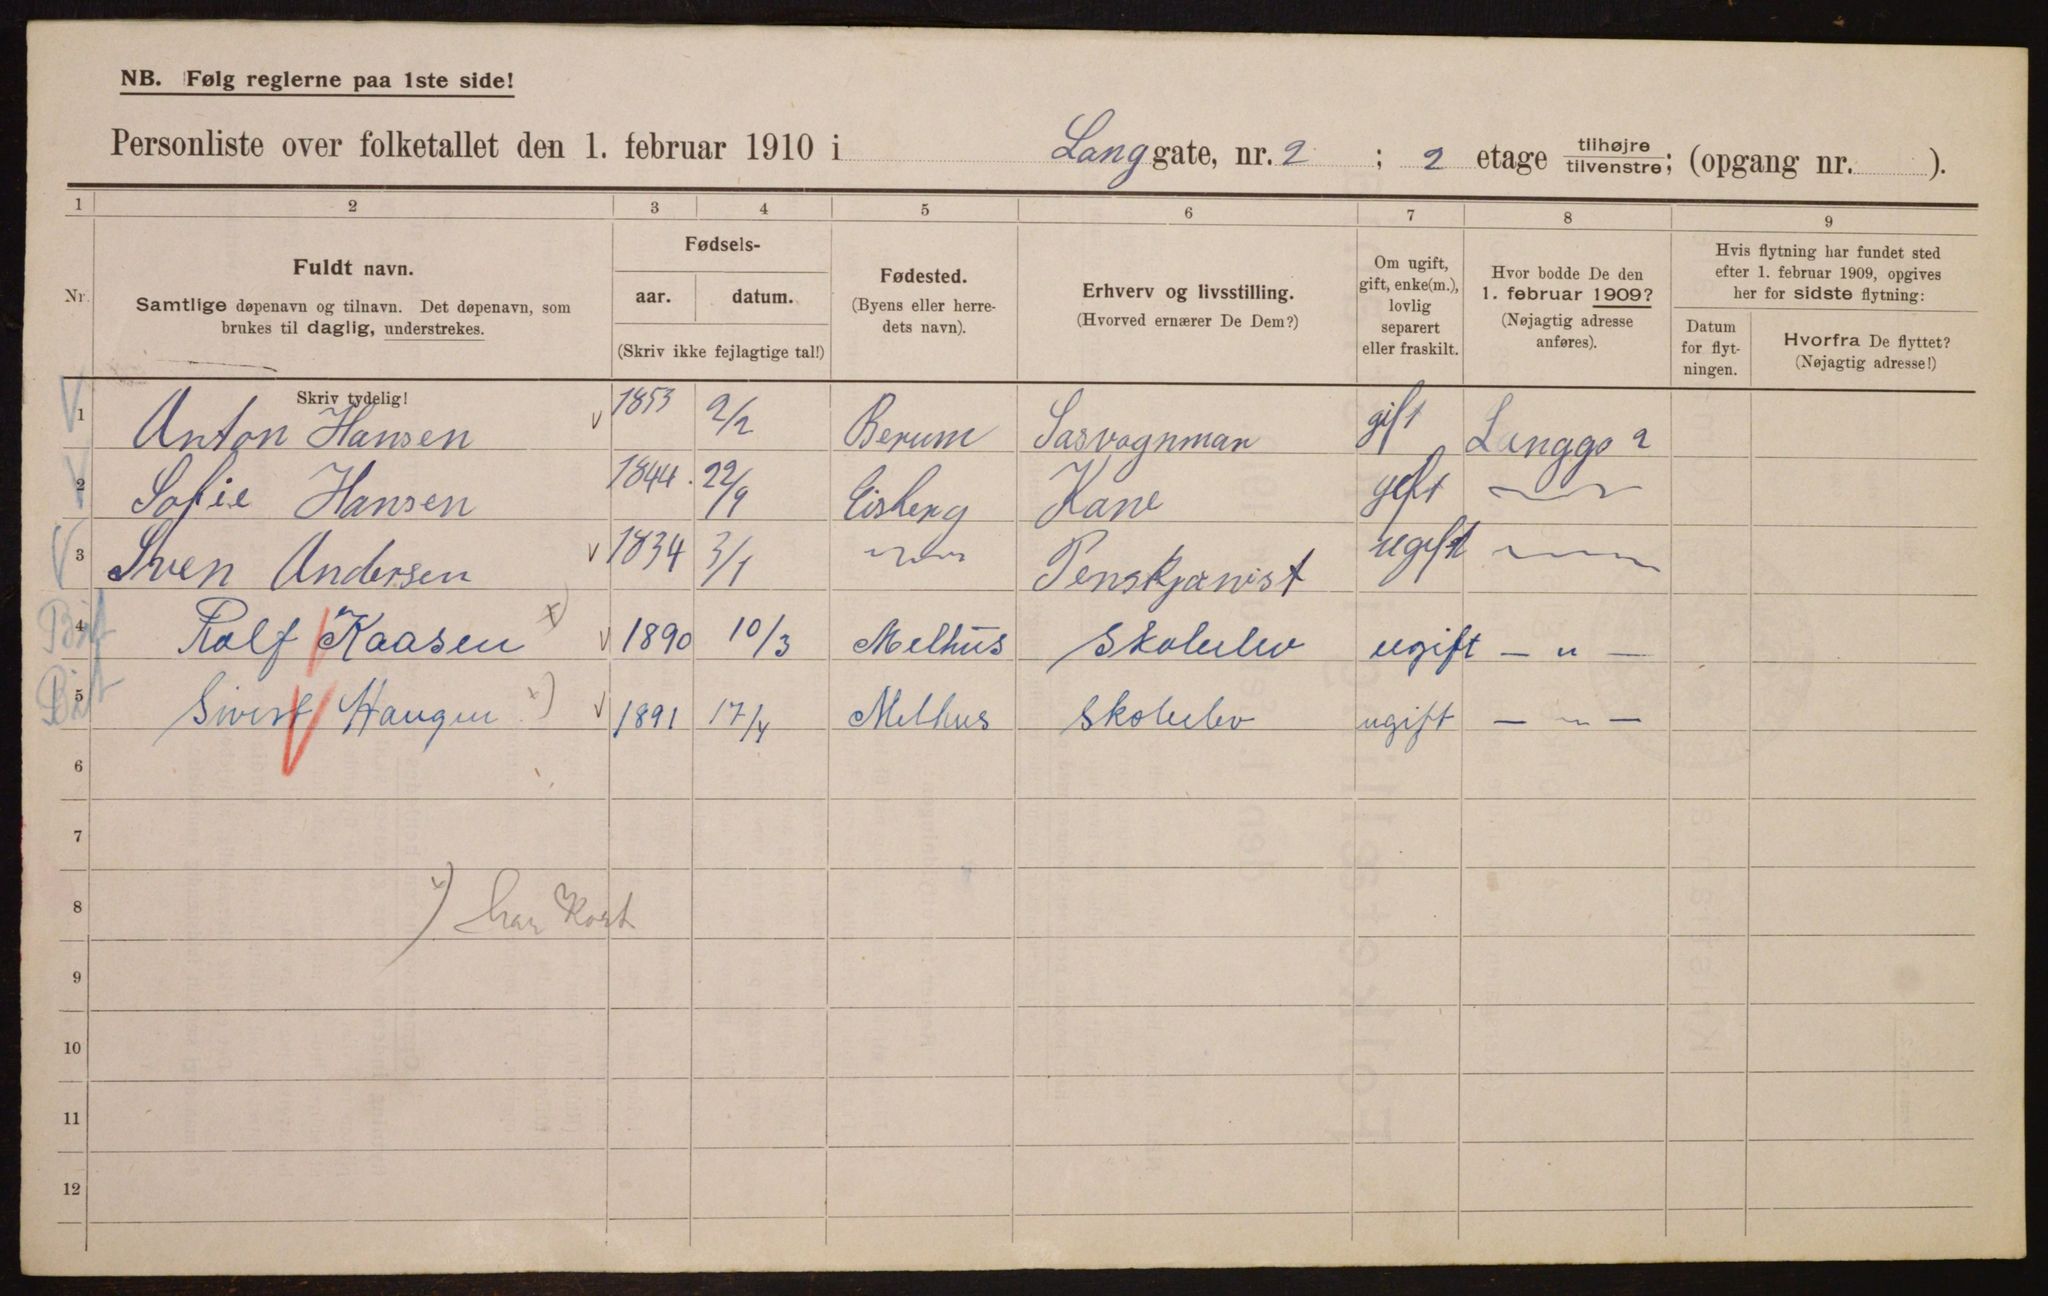 NB. Følg reglerne paa 1ste side!
Personliste over folketallet den 1. februar 1910 i Lang gate, nr. 2 ; 2 etage tilhøjre/tilvenstre; (opgang nr. ).
1 2 3 4 5 6 7 8 9
Nr.
Fuldt navn.
Samtlige døpenavn og tilnavn. Det døpenavn, som
brukes til daglig, understrekes.
Skriv tydelig!
Fødsels-
aar. datum.
(Skriv ikke fejlagtige tal!)
Fødested.
(Byens eller herre-
dets navn).
Erhverv og livsstilling.
(Hvorved ernærer De Dem?)
Om ugift,
gift, enke(m.),
lovlig
separert
eller fraskilt.
Hvor bodde De den
1. februar 1909?
(Nøjagtig adresse
anføres).
Hvis flytning har fundet sted
efter 1. februar 1909, opgives
her for sidste flytning:
Datum
for flyt-
ningen.
Hvorfra De flyttet?
(Nøjagtig adresse!)
1 Anton Hansen 1853 2/2 Berum Sasvognman gift Langga 2
2 Sofie Hansen 1844. 22/9 Eisberg Kane gift
3 Sven Andersen 1834 3/1 Penskjanist ugift
4 Rolf Kaasen x) 1890 10/3 Melhus Skolelev ugift — " —
5 Sivert Haugen x) 1891 17/4 Melhus Skolelev ugift — " —
6
7
8 x) har Kort
9
10
11
12